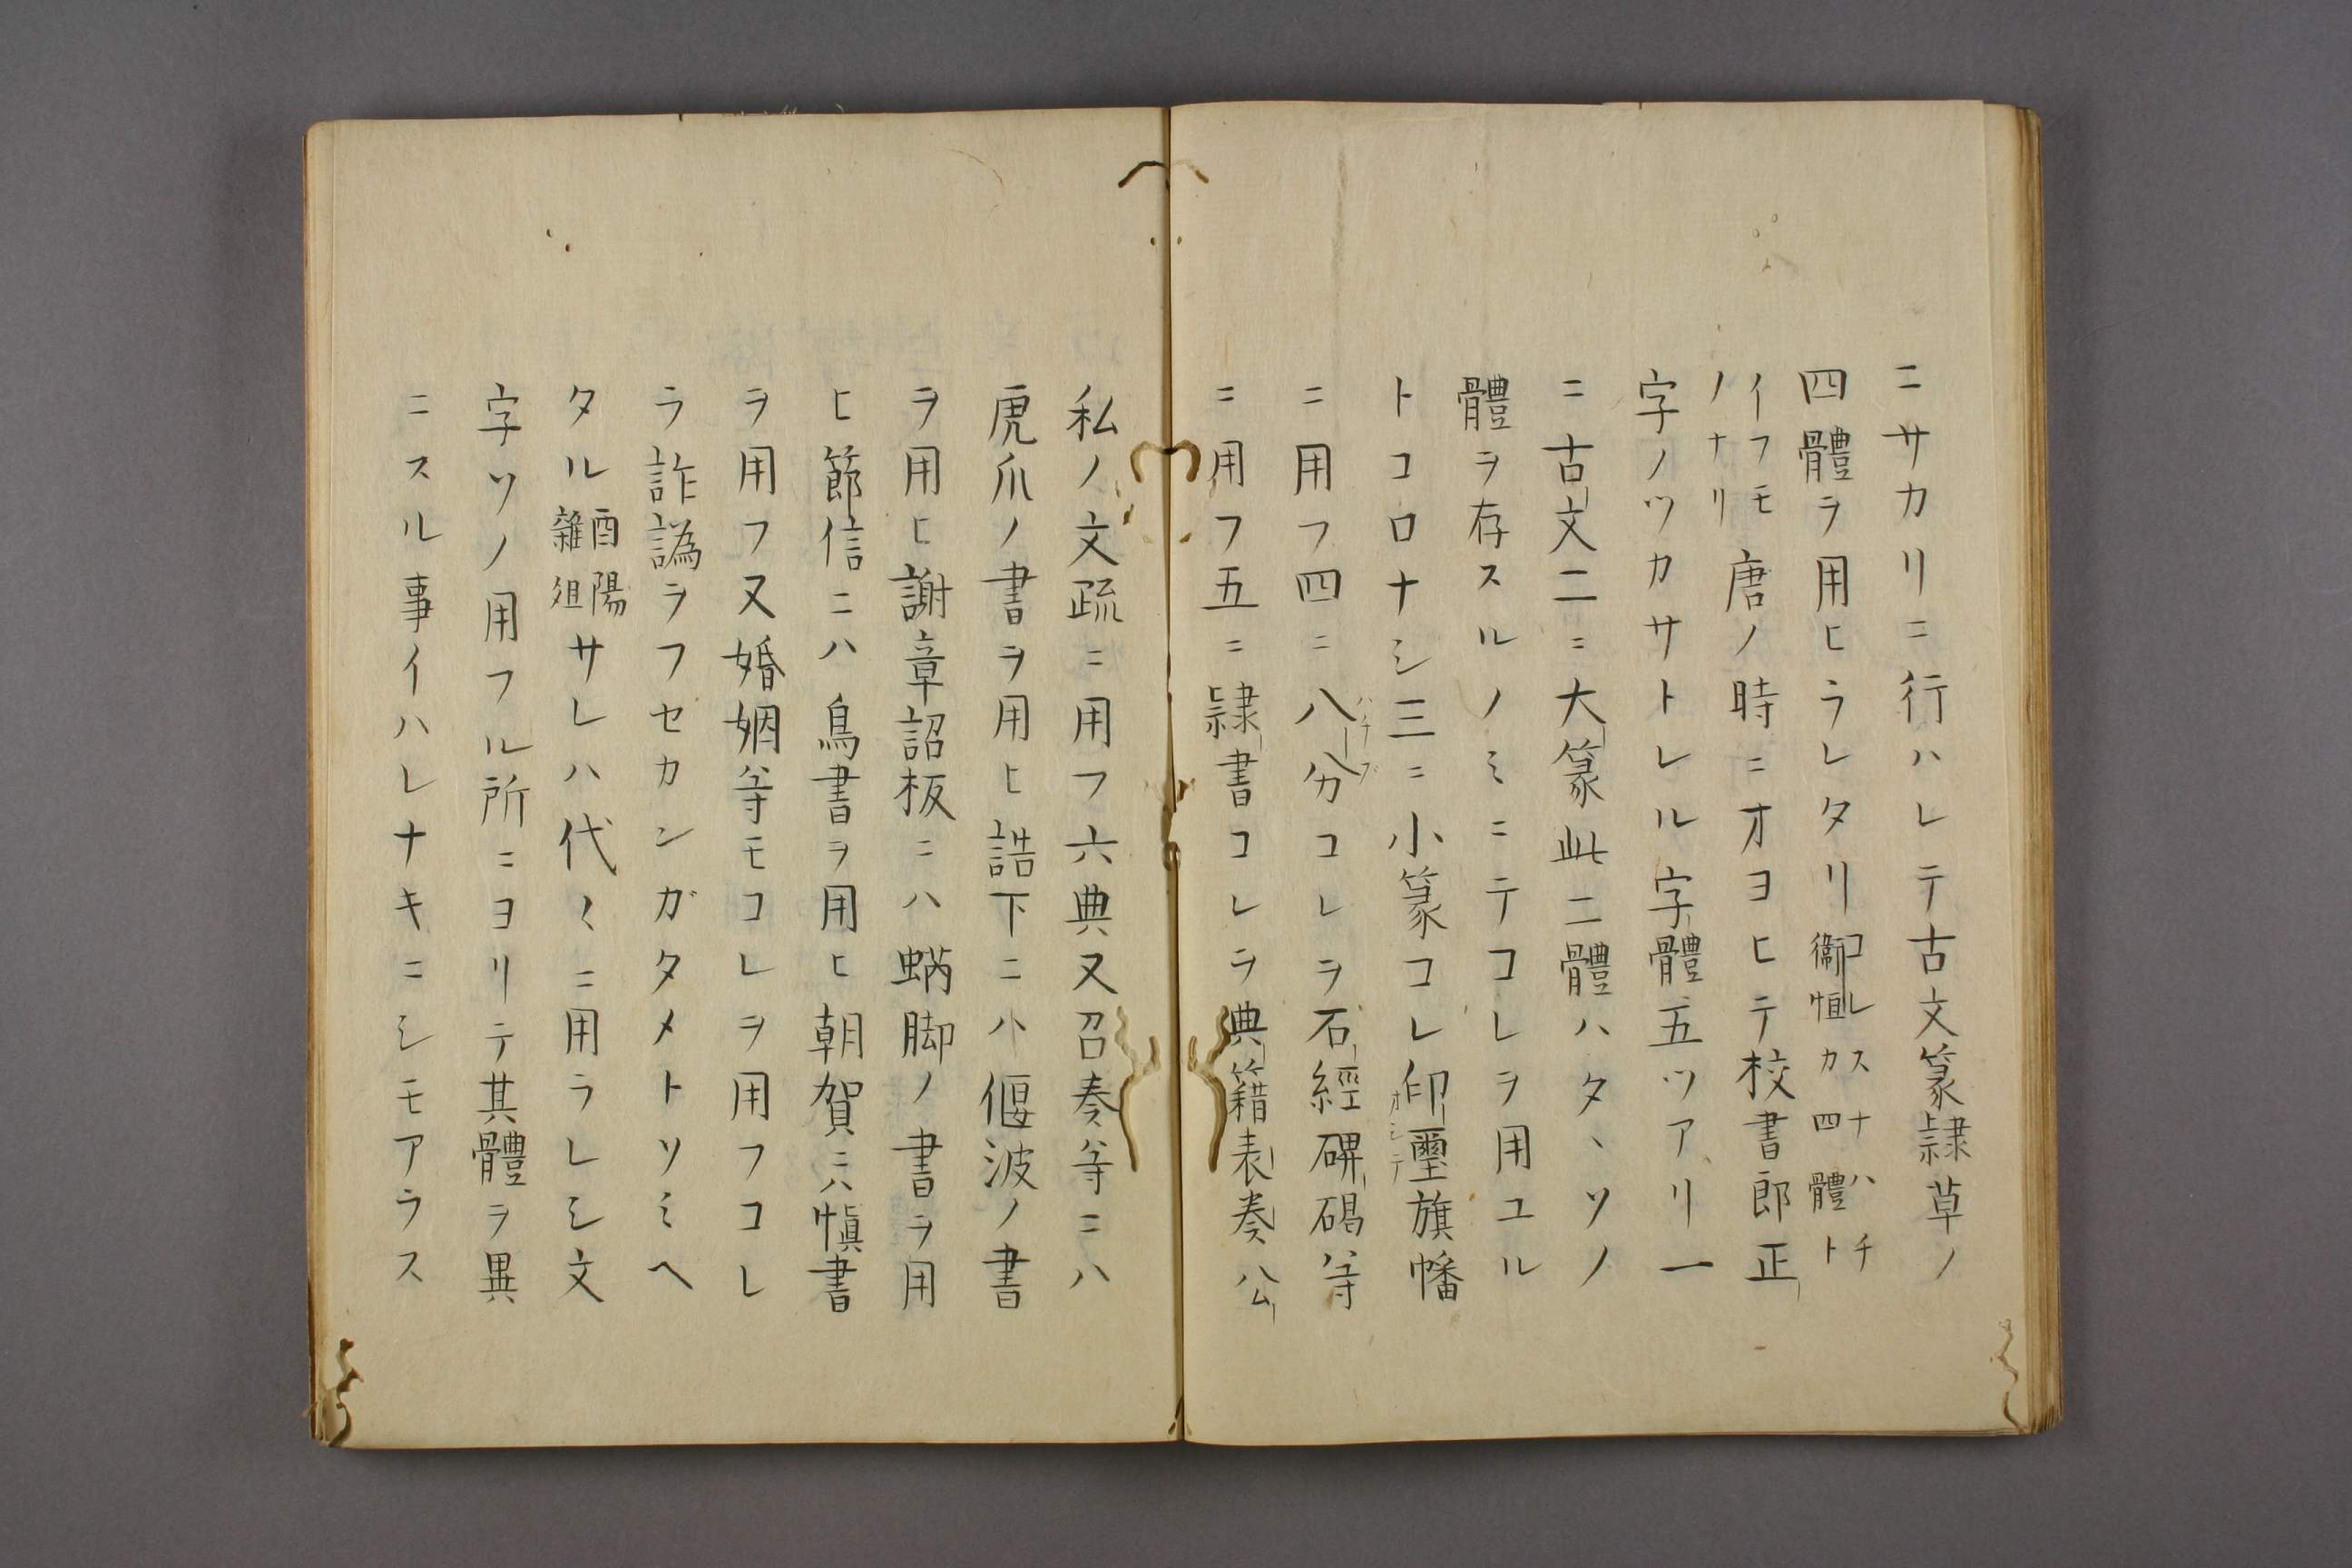 ニサカリニ行ハレテ古文篆隷草ノ
四體ヲ用ヒラレタリ コレスナハチ 衞恒カ四體ト
イフモ ノナリ 唐ノ時ニオヨヒテ校書郎正
字ノツカサトレル字體五ツアリ一
ニ古文二ニ大篆此二體ハタヽソノ
體ヲ存スルノミニテコレヲ用ユル
トコロナシ三ニ小篆コレ印璽旗幡 オシテ
ニ用フ四ニ八分コレヲ石經碑碣等 ハチブ
ニ用フ五ニ隷書コレヲ典籍表奏公
私ノ文疏ニ用フ六典又召奏等ニハ
虎爪ノ書ヲ用ヒ誥下ニハ偃波ノ書
ヲ用ヒ謝章詔板ニハ蚋脚ノ書ヲ用
ヒ節信ニハ鳥書ヲ用ヒ朝賀ニハ愼書
ヲ用フ又婚姻等モコレヲ用フコレ
ラ詐譌ヲフセカンガタメトソミヘ
タル 酉陽 雜俎 サレハ代〱ニ用ラレシ文
字ソノ用フル所ニヨリテ其體ヲ異
ニスル事イハレナキニシモアラス